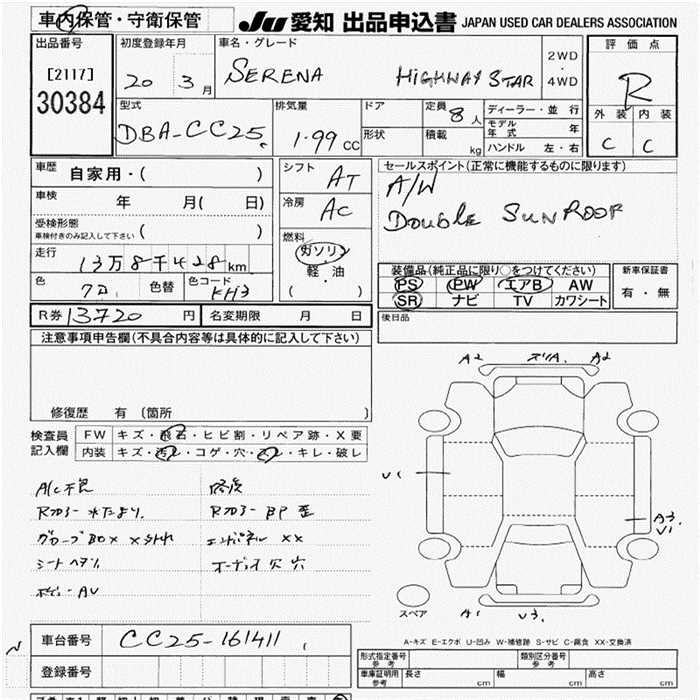 車内保管・守衛保管
JU 愛知 出品申込書 JAPAN USED CAR DEALERS ASSOCIATION
出品番号
[2117]
30384
初度登録年月
20 3月
車名・グレード
SERENA HIGHWAY STAR
2WD
・
4WD
評価点
R
外装 内装
C C
型式
DBA-CC25
排気量
1.99 CC
ドア
形状
定員
8人
積載
kg
ディーラー・並行
モデル
年式 年
ハンドル 左・右
車歴
自家用・( )
車検
年 月( 日)
受検形態
車検付きのみ記入して下さい ( )
走行
13万8千428km
色
色替
色コード
KH3
シフト
AT
冷房
AC
燃料
ガソリン
軽・油
( )
セールスポイント(正常に機能するものに限ります)
A/W
DOUBLE SUNROOF
装備品(純正品に限り○をつけてください)
PS PW エアB AW
SR ナビ TV カワシート
新車保証書
有・無
R券 13720 円
名変期限 月 日
後日品
注意事項申告欄(不具合内容等は具体的に記入して下さい)
修復歴 有 〔箇所 〕
検査員
記入欄
FW キズ・飛石・ヒビ割・リペア跡・X要
内装 キズ・汚レ・コゲ・穴・スレ・キレ・破レ
A/C不良
Rフロアー 水たまり.
グローブBOX X 外れ
シート ヘタリ
ボディ-AU
修復
Rフロアー BP 歪
エンドパネル XX
オーディオ 欠 穴
A2 A2
U1
A3
U1
スペア
A1 U3.
A-キズ E-エクボ U-凹み W-補修跡 S-サビ C-腐食 XX-交換済
車台番号
CC25-161411
登録番号
型式指定番号
参考
類別区分番号
参考
車庫証明用
参考
長さ cm 幅 cm 高さ cm